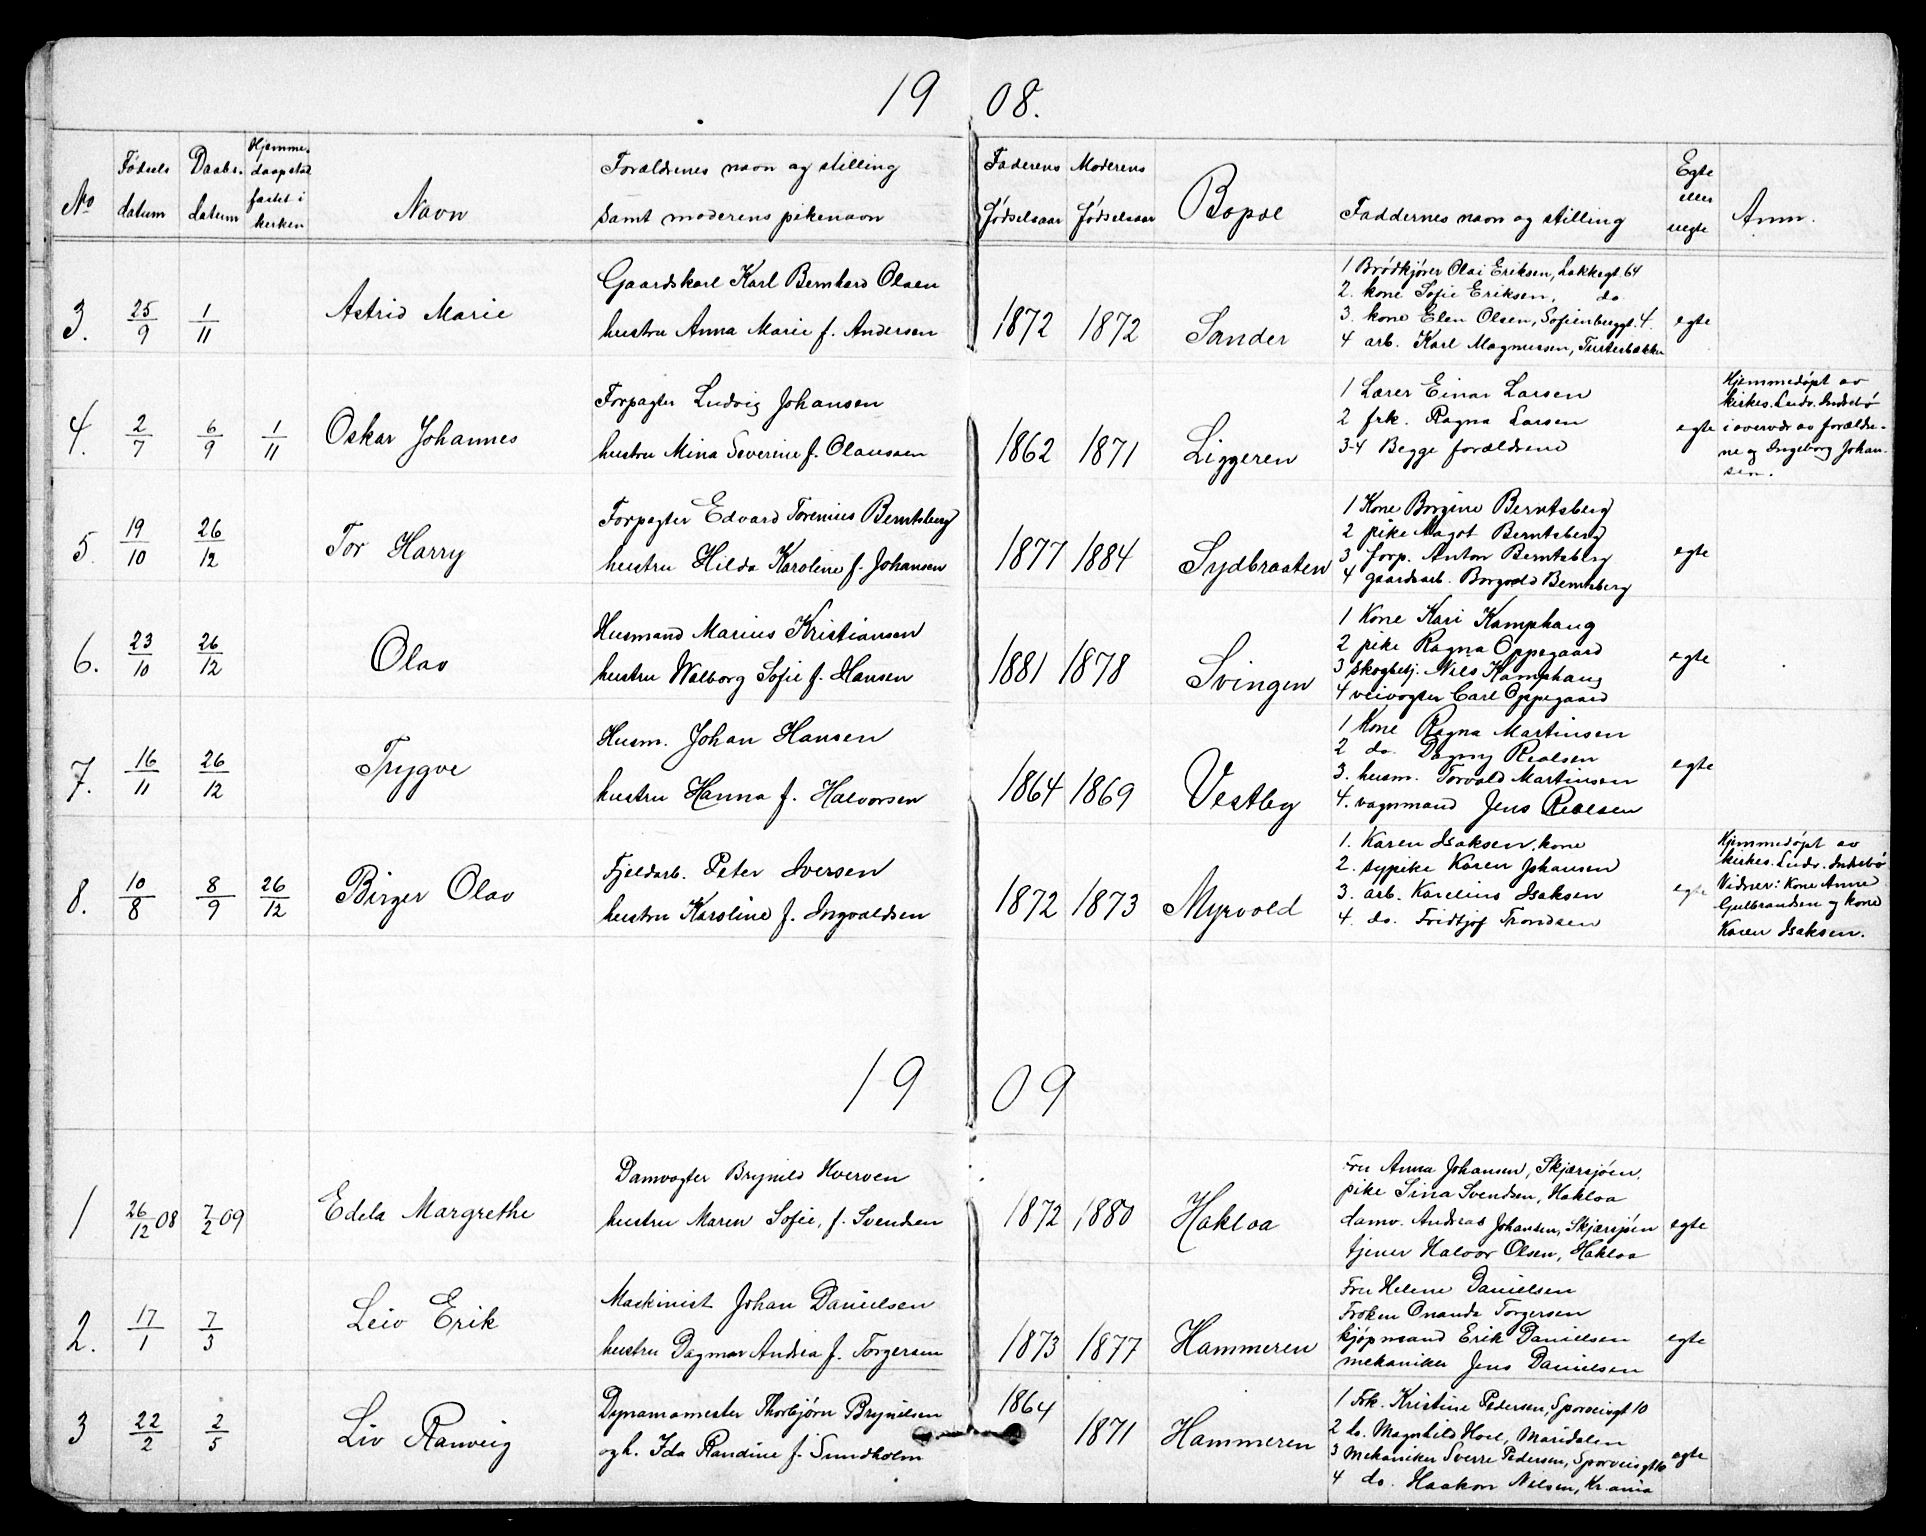 1908.
No
Fødsels datum
Daabs- datum
Hjemme- daap stad- fæstet i kirken
Navn
Forældrenes navn og stilling
samt moderens pikenavn
Faderens Fødselsaar
Moderens Fødselsaar
Bopæl
Faddernes navn og stilling
Egte eller uegte
Anm.
3. 25/9 1/11 Astrid Marie
Gaardskarl Karl Bernhard Olsen
hustru Anna Marie f. Andersen
1872 1872 Sander
1 Brødkjører Olai Eriksen, Lakkegt. 64
2. kone Sofie Eriksen, do.
3. kone Elen Olsen, Sofienberggt. 4.
4 arb. Karl Magnussen,
egte
4. 2/7 6/9 1/11 Oskar Johannes
Forpagter Ludvig Johansen
hustru Mina Severine f. Olaussen
1862 1871 Liggeren
1 Lærer Einar Larsen
2 frk. Ragna Larsen
3-4 Begge forældrene
egte
Hjemmedøpt av
kirkes. Ludv. Indsebø
i overvær av forældre-
ne og Ingeborg Johan-
sen.
5. 19/10 26/12 Tor Harry
Forpagter Edvard Torenius Berntsberg
hustru Hilda Karoline f. Johansen
1877 1884 Sydbraaten
1 Kone Borgine Berntsberg
2 pike Magot Berntsberg
3 forp. Anton Berntsberg
4 gaardsarb. Borgvald Berntsberg
egte
6. 23/10 26/12 Olav
Husmand Marius Kristiansen
hustru Walborg Sofie f. Hansen
1881 1878 Svingen
1 Kone Kari Kamphaug
2 pike Ragna Oppegaard
3 skogbetj. Nils Kamphaug
4 veivogter Carl Oppegaard
egte
7. 16/11 26/12 Trygve
Husm. Johan Hansen
hustru Hanna f. Halvorsen
1864 1869 Vestby
1 Kone Ragna Martinsen
2 do. Dagny Roalsen
3. husm. Torvald Martinsen
4. vognmand Jens Roalsen
egte
8. 10/8 8/9 26/12 Birger Olav
Fjeldarb. Peter Iversen
hustru Karoline f. Ingvaldsen
1872 1873 Myrvold
1. Karen Isaksen, kone
2. sypike Karen Johansen
3. arb. Karelius Isaksen
4. do. Fridtjof Trondsen
egte
Hjemmedøpt av
kirkes. Ludv. Indsebø
Vidner: Kone Anne
Gulbrandsen og kone
Karen Isaksen.
1909
1 26/12 08 7/2 09 Edela Margrethe
Damvogter Brynild Hverven
hustru Maren Sofie, f. Svendsen
1872 1880 Hakloa
Fru Anna Johansen, Skjærsjøen.
pike Sina Svendsen, Hakloa
damv. Andreas Johansen, Skjærsjøen
tjener Halvor Olsen, Hakloa
egte
2. 17/1 7/3 Leiv Erik
Maskinist Johan Danielsen
hustru Dagmar Andrea f. Torgersen
1873 1877 Hammeren
Fru Helene Danielsen
Frøken Onanda Torgersen
kjøpmand Erik Danielsen
mekaniker Jens Danielsen
egte
3 22/2 2/5 Liv Ranveig
Dynamomester Thorbjørn Brynilsen
og h. Ida Randine f. Sundholm
1864 1871 Hammeren
1 Frk. Kristine Pedersen, Sporveisgt 10
2 do. Magnhild Hoel, Maridalen
3 Mekaniker Sverre Pedersen, Sporveisgt 10
4 do. Haakon Nilsen, Kr.ania
egte